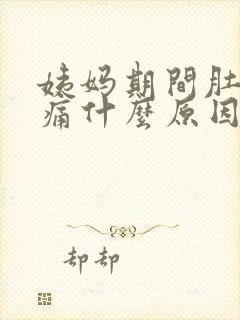 姨妈期間肚
痛什麼原因
却却